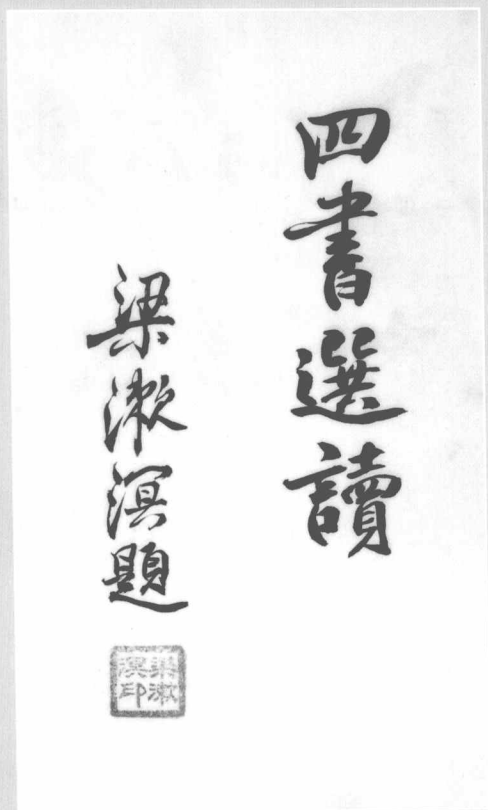 四書選讀
梁漱溟題
梁漱
溟印